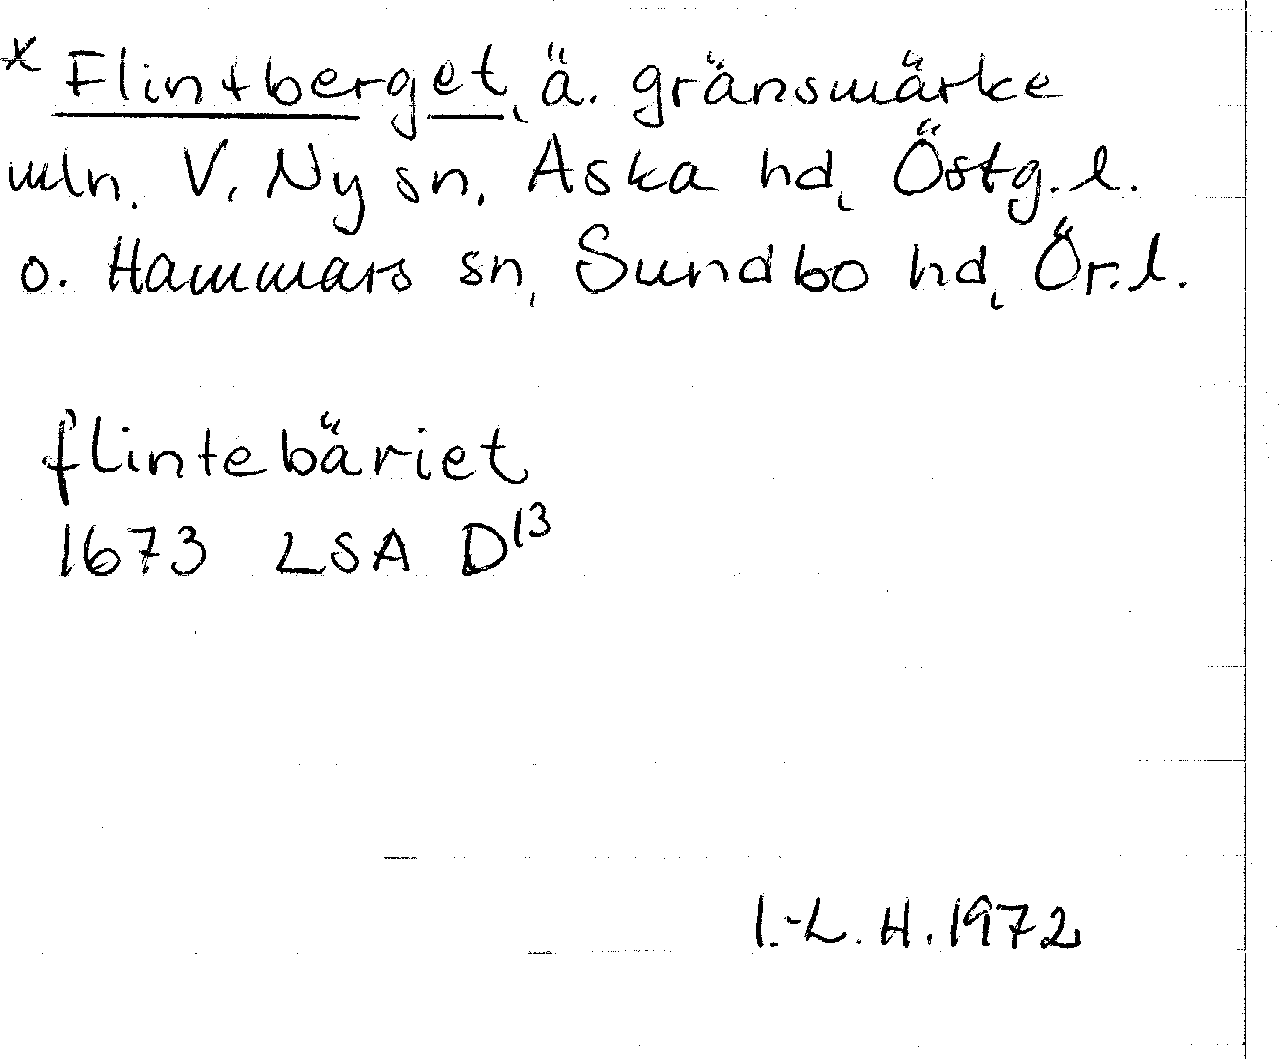 * Flintberget, ä. gränsmärke
mln. V. Ny sn, Aska hd, Östg. l.
o. Hammars sn, Sundbo hd, Ör. l.
flintebäriet
1673 LSA D¹³
I.-L. H. 1972